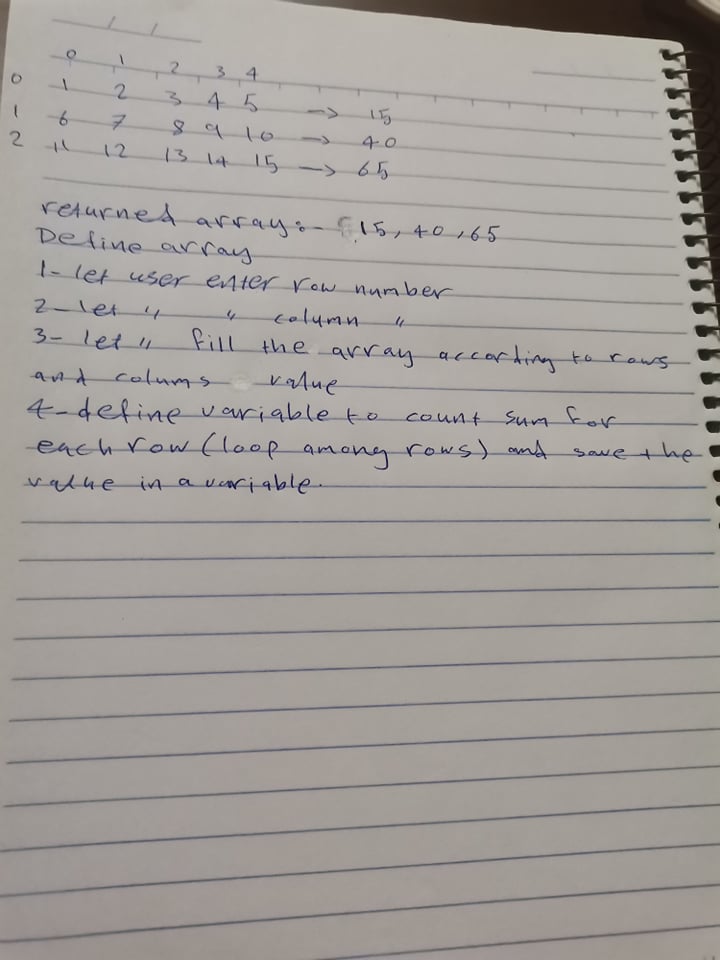 / /
0 1 2 3 4
0 1 2 3 4 5 -> 15
1 6 7 8 9 10 -> 40
2 11 12 13 14 15 -> 65
returned array:- 15, 40, 65
Define array
1- let user enter row number
2- let " " column "
3- let " fill the array according to rows
and colums value
4- define variable to count sum for
each row (loop among rows) and save the
value in a variable.